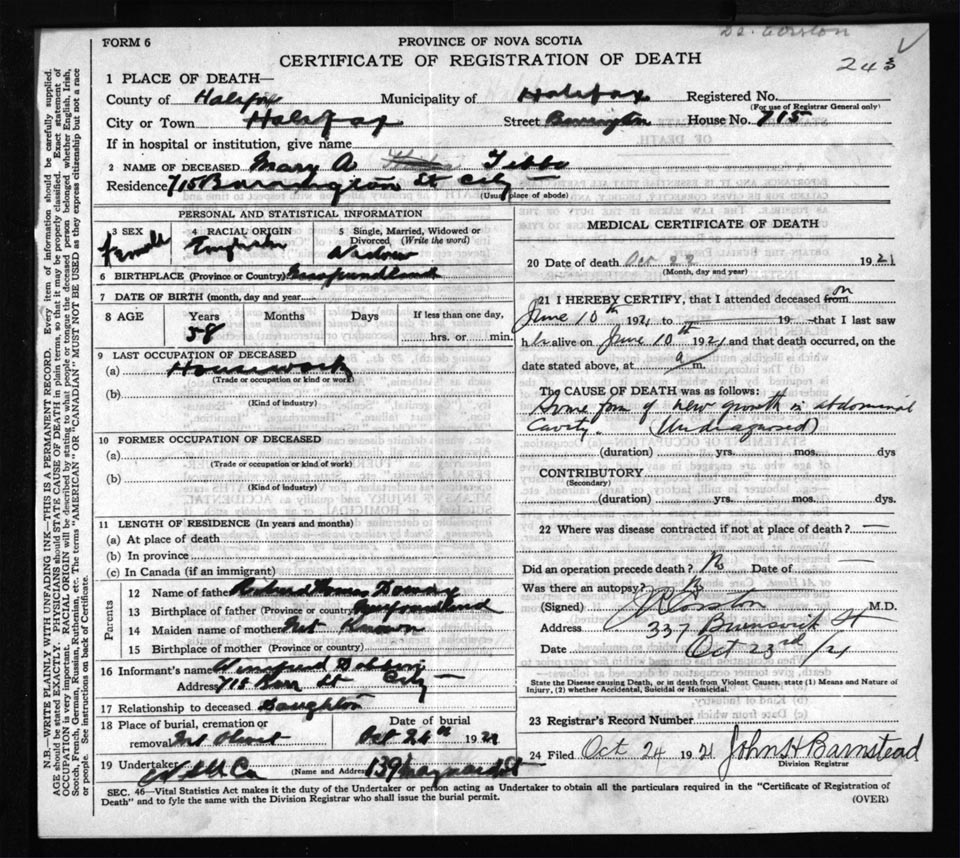 FORM 6
PROVINCE OF NOVA SCOTIA
CERTIFICATE OF REGISTRATION OF DEATH
243
1 PLACE OF DEATH—
County of Halifax Municipality of Halifax Registered No.
(For use of Registrar General only)
City or Town Halifax Street Barrington House No. 715
If in hospital or institution, give name
2 NAME OF DECEASED Mary A Tibbo
Residence 715 Barrington St City
(Usual place of abode)
PERSONAL AND STATISTICAL INFORMATION
3 SEX 4 RACIAL ORIGIN 5 Single, Married, Widowed or Divorced (Write the word)
Female English Widow
6 BIRTHPLACE (Province or Country) Newfoundland
7 DATE OF BIRTH (month, day and year)
8 AGE Years Months Days If less than one day,
58 hrs. or min.
9 LAST OCCUPATION OF DECEASED
(a) Housework
(Trade or occupation or kind or work)
(b)
(Kind of industry)
10 FORMER OCCUPATION OF DECEASED
(a)
(Trade or occupation or kind of work)
(b)
(Kind of industry)
11 LENGTH OF RESIDENCE (In years and months)
(a) At place of death
(b) In province
(c) In Canada (if an immigrant)
Parents
12 Name of father Thomas
13 Birthplace of father (Province or country) Newfoundland
14 Maiden name of mother Not Known
15 Birthplace of mother (Province or country)
16 Informant's name Winnifred
Address 715 Barr St City
17 Relationship to deceased Daughter
18 Place of burial, cremation or removal Mt Olivet
Date of burial Oct 24th 1921
19 Undertaker
(Name and Address) 139 Maynard St
MEDICAL CERTIFICATE OF DEATH
20 Date of death Oct 22 1921
(Month, day and year)
21 I HEREBY CERTIFY, that I attended deceased from on
June 10th 1921 to 19 that I last saw
her alive on June 10th 1921 and that death occurred, on the
date stated above, at a m.
The CAUSE OF DEATH was as follows:
Some form of new growth in abdominal
cavity. (Undiagnosed)
(duration) yrs. mos. dys
CONTRIBUTORY
(Secondary)
(duration) yrs. mos. dys.
22 Where was disease contracted if not at place of death? —
Did an operation precede death? No Date of —
Was there an autopsy? No
(Signed) Corston M.D.
Address 337 Brunswick St
Date Oct 23rd /21
State the Disease Causing Death, or in death from Violent Causes, state (1) Means and Nature of Injury, (2) whether Accidental, Suicidal or Homicidal.
23 Registrar's Record Number
24 Filed Oct 24 1921 John H Barnstead
Division Registrar
SEC. 46—Vital Statistics Act makes it the duty of the Undertaker or person acting as Undertaker to obtain all the particulars required in the "Certificate of Registration of
Death" and to fyle the same with the Division Registrar who shall issue the burial permit.
(OVER)
N.B.—WRITE PLAINLY WITH UNFADING INK—THIS IS A PERMANENT RECORD. Every item of information should be carefully supplied.
AGE should be stated EXACTLY. PHYSICIANS should STATE CAUSE OF DEATH in plain terms, so that it may be properly classified. Exact statement of
OCCUPATION is very important. RACIAL ORIGIN will be described by stating to what people or tongue the deceased person belonged whether English, Irish,
Scotch, French, German, Russian, Ruthenian, etc. The terms "AMERICAN" OR "CANADIAN" MUST NOT BE USED as they express citizenship but not a race
or people. See instructions on back of Certificate.